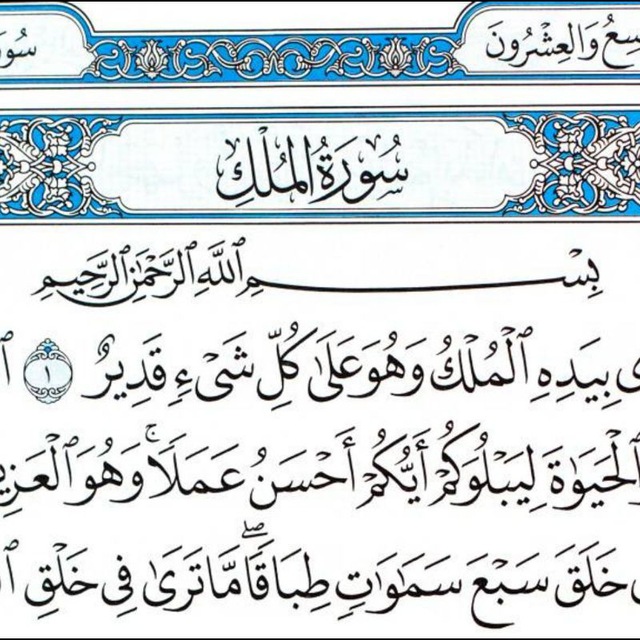 سُورَ
سِعُ وَالعِشْرُونَ
سُورَةُ المُلْكِ
بِسْمِ ٱللَّهِ ٱلرَّحْمَٰنِ ٱلرَّحِيمِ
بِيَدِهِ ٱلْمُلْكُ وَهُوَ عَلَىٰ كُلِّ شَىْءٍ قَدِيرٌ ١
ٱلْحَيَوٰةَ لِيَبْلُوَكُمْ أَيُّكُمْ أَحْسَنُ عَمَلًاۚ وَهُوَ ٱلْعَزِي
خَلَقَ سَبْعَ سَمَٰوَٰتٍ طِبَاقًاۖ مَّا تَرَىٰ فِى خَلْقِ